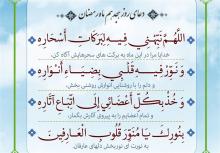 دعای روز هجدهم ماه رمضان
اللَّهُمَّ نَبِّهْنِي فِيهِ لِبَرَكَاتِ أَسْحَارِهِ
خدایا مرا در این ماه به برکت های سحرهایش آگاه کن
وَ نَوِّرْ فِيهِ قَلْبِي بِضِيَاءِ أَنْوَارِهِ
و دلم را با روشنایی انوارش روشنی بخش،
وَ خُذْ بِكُلِّ أَعْضَائِي إِلَى اتِّبَاعِ آثَارِهِ
و تمام اعضایم را به پیروی آثارش بگمار،
بِنُورِكَ يَا مُنَوِّرَ قُلُوبِ الْعَارِفِينَ
به نورت ای نوربخش دلهای عارفان.